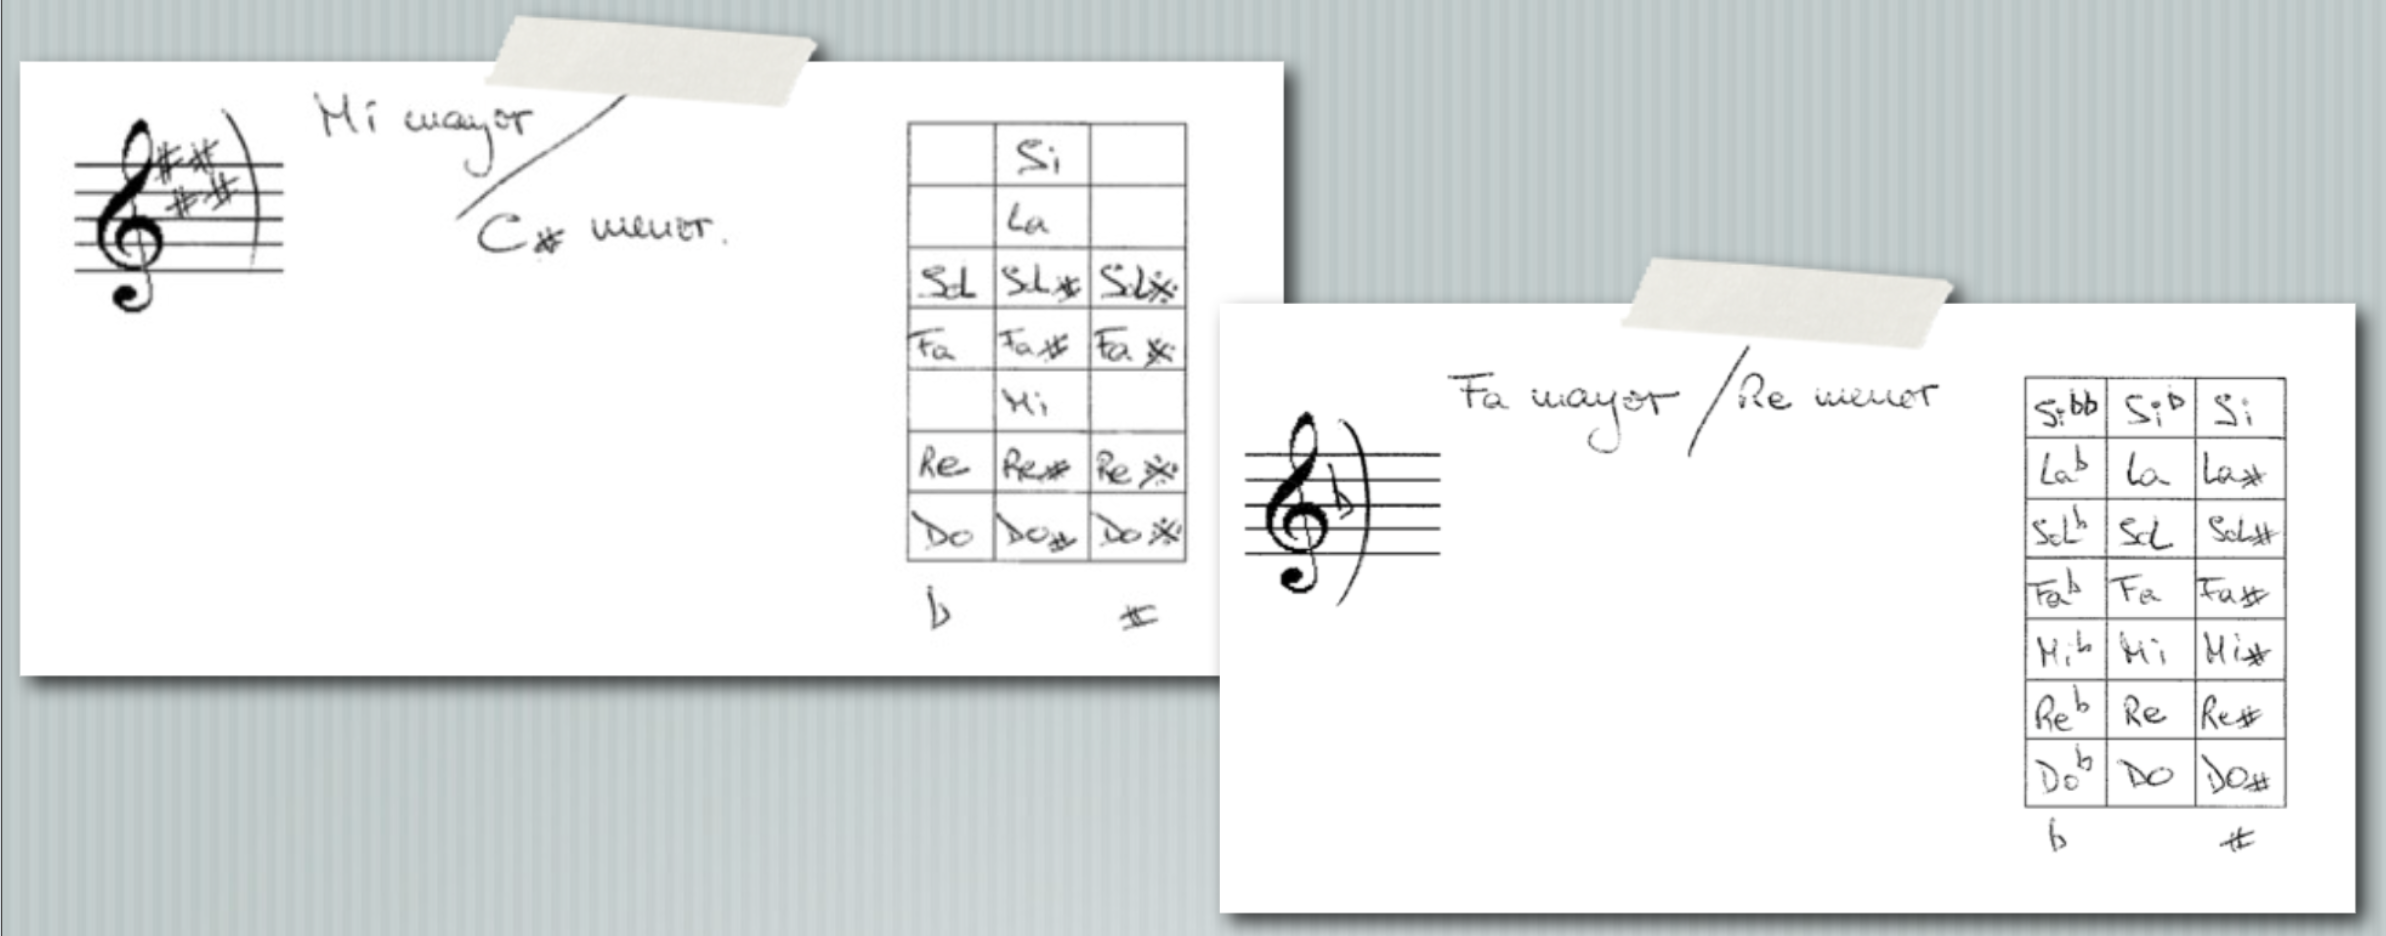 Mi mayor
C# menor.
Si
La
Sol Sol# Sol𝄪
Fa Fa# Fa𝄪
Mi
Re Re# Re𝄪
Do Do# Do𝄪
b #
Fa mayor / Re menor
Sibb Sib Si
Lab La La#
Solb Sol Sol#
Fab Fa Fa#
Mib Mi Mi#
Reb Re Re#
Dob Do Do#
b #